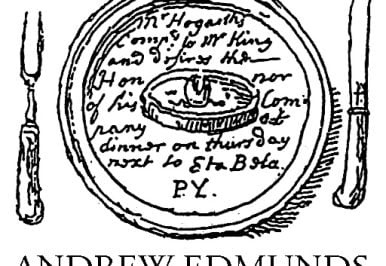 Mr Hogarth's
Comps to Mr King
and desires the
Hon nor
of his Com
pany at
dinner on thursday
next to Eta Beta
P.Y.
ANDREW EDMUNDS